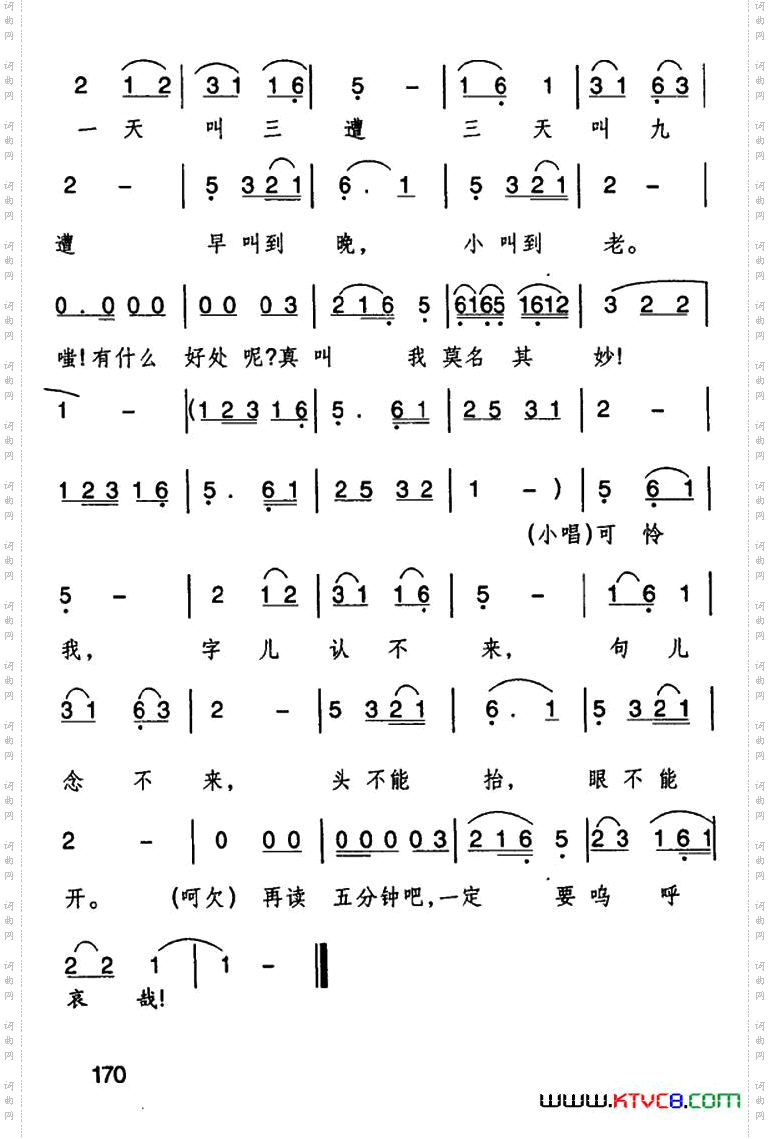 2 1 2 | 3 1 1 6 | 5 - | 1 6 1 | 3 1 6 3 |
一 天 叫 三 遭 三 天 叫 九
2 - | 5 3 2 1 | 6 . 1 | 5 3 2 1 | 2 - |
遭 早 叫到 晚, 小 叫到 老。
0 . 0 0 0 | 0 0 0 3 | 2 1 6 5 | 6165 1612 | 3 2 2 |
嗤!有什么 好处 呢?真叫 我 莫名 其 妙!
1 - | (1 2 3 1 6 | 5 . 6 1 | 2 5 3 1 | 2 - |
1 2 3 1 6 | 5 . 6 1 | 2 5 3 2 | 1 - ) | 5 6 1 |
(小唱)可 怜
5 - | 2 1 2 | 3 1 1 6 | 5 - | 1 6 1 |
我, 字 儿 认 不 来, 句 儿
3 1 6 3 | 2 - | 5 3 2 1 | 6 . 1 | 5 3 2 1 |
念 不 来, 头 不能 抬, 眼 不 能
2 - | 0 0 0 | 0 0 0 0 3 | 2 1 6 5 | 2 3 1 6 1 |
开。 (呵欠) 再读 五分钟吧,一定 要 呜 呼
2 2 1 | 1 - ‖
哀 哉!
170
www.KTVC8.COM
词曲网